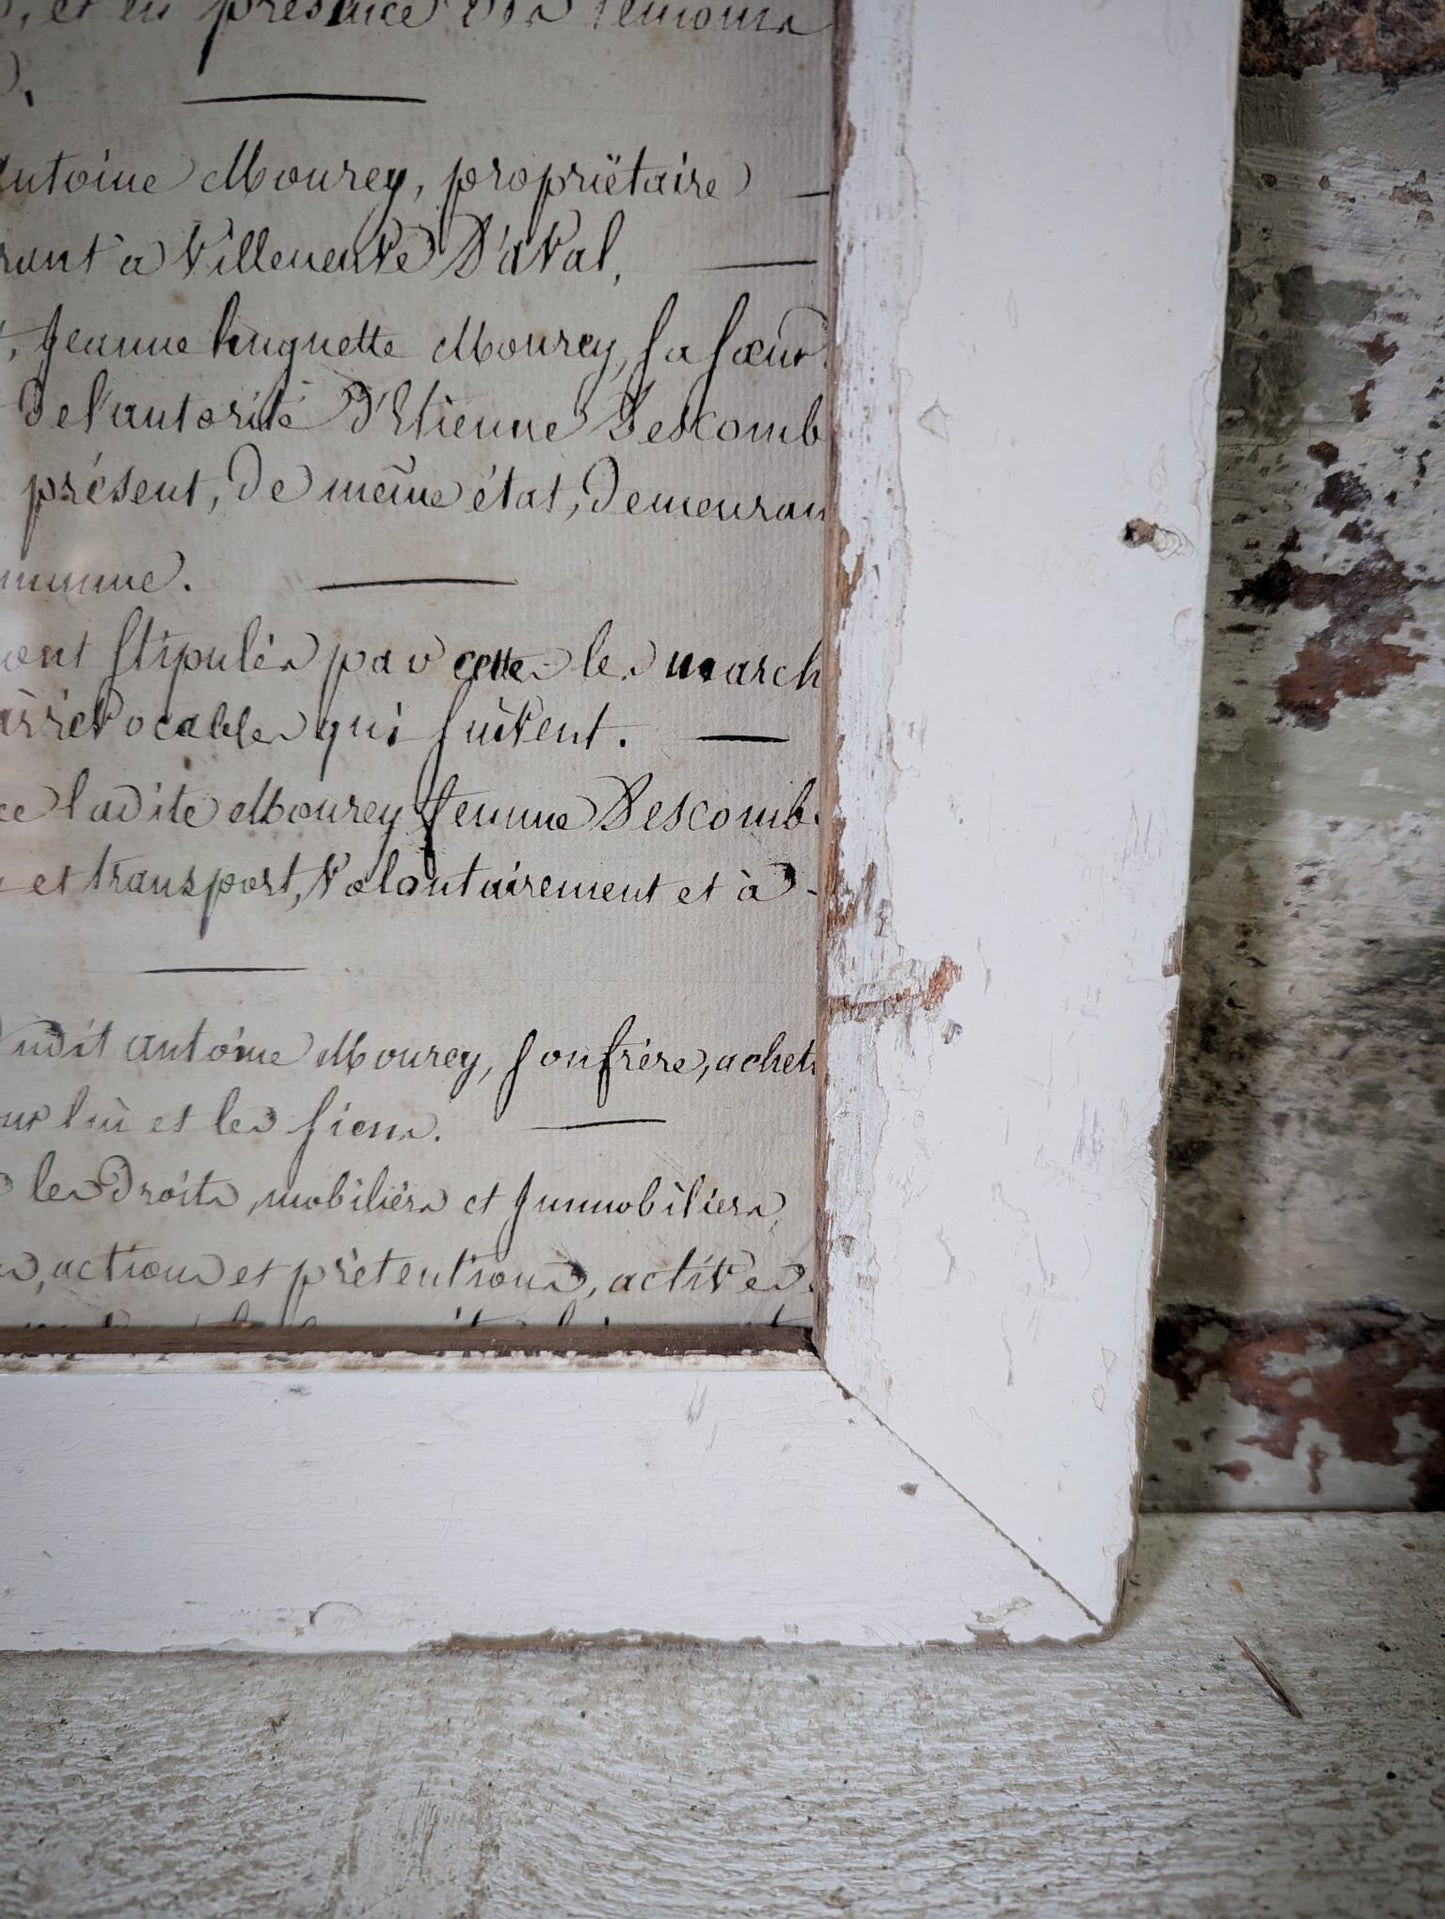 , et en présence des témoins
antoine Mourey, propriëtaire
rant a Villeneuve D'aval,
, Jeanne huguette Mourey, sa sœur
de l'autorité d'Etienne Descomb
présent, de même état, demeuran
mmune.
ont stipulés par cette les march
irrévocables qui suivent.
ce ladite Mourey femme Descomb
et transport, volontairement et à
udit antoine Mourey, son frère, achet
our lui et les siens.
les droits, mobiliérs et Jmmobiliers,
, actions et prétentions, actives